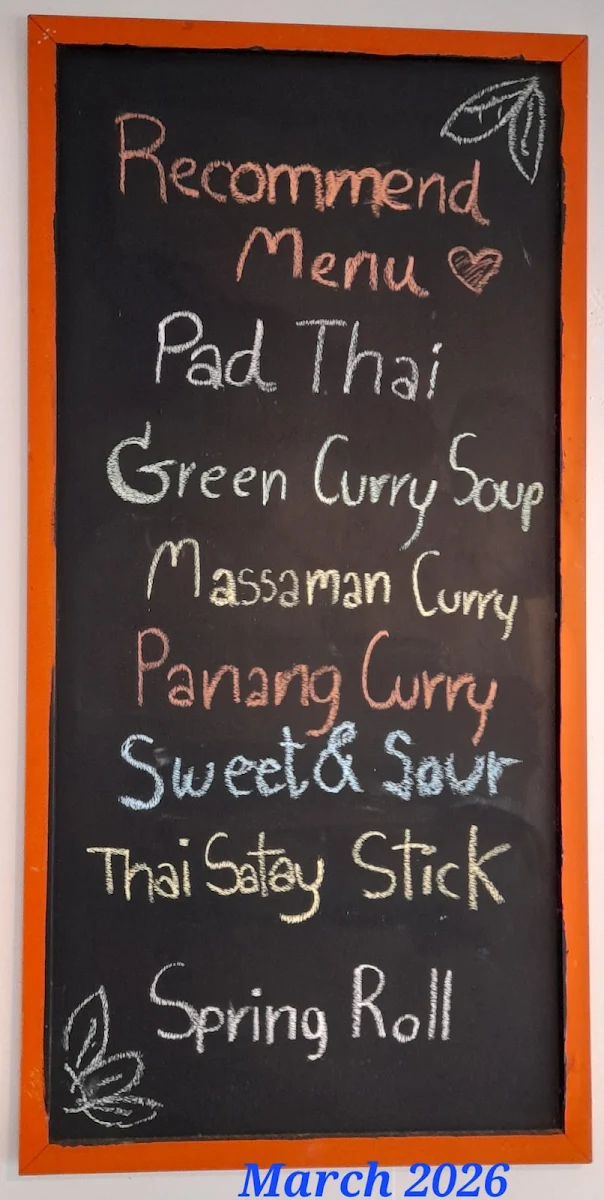 Recommend
Menu
Pad Thai
Green Curry Soup
Massaman Curry
Panang Curry
Sweet & Sour
Thai Satay Stick
Spring Roll
March 2026